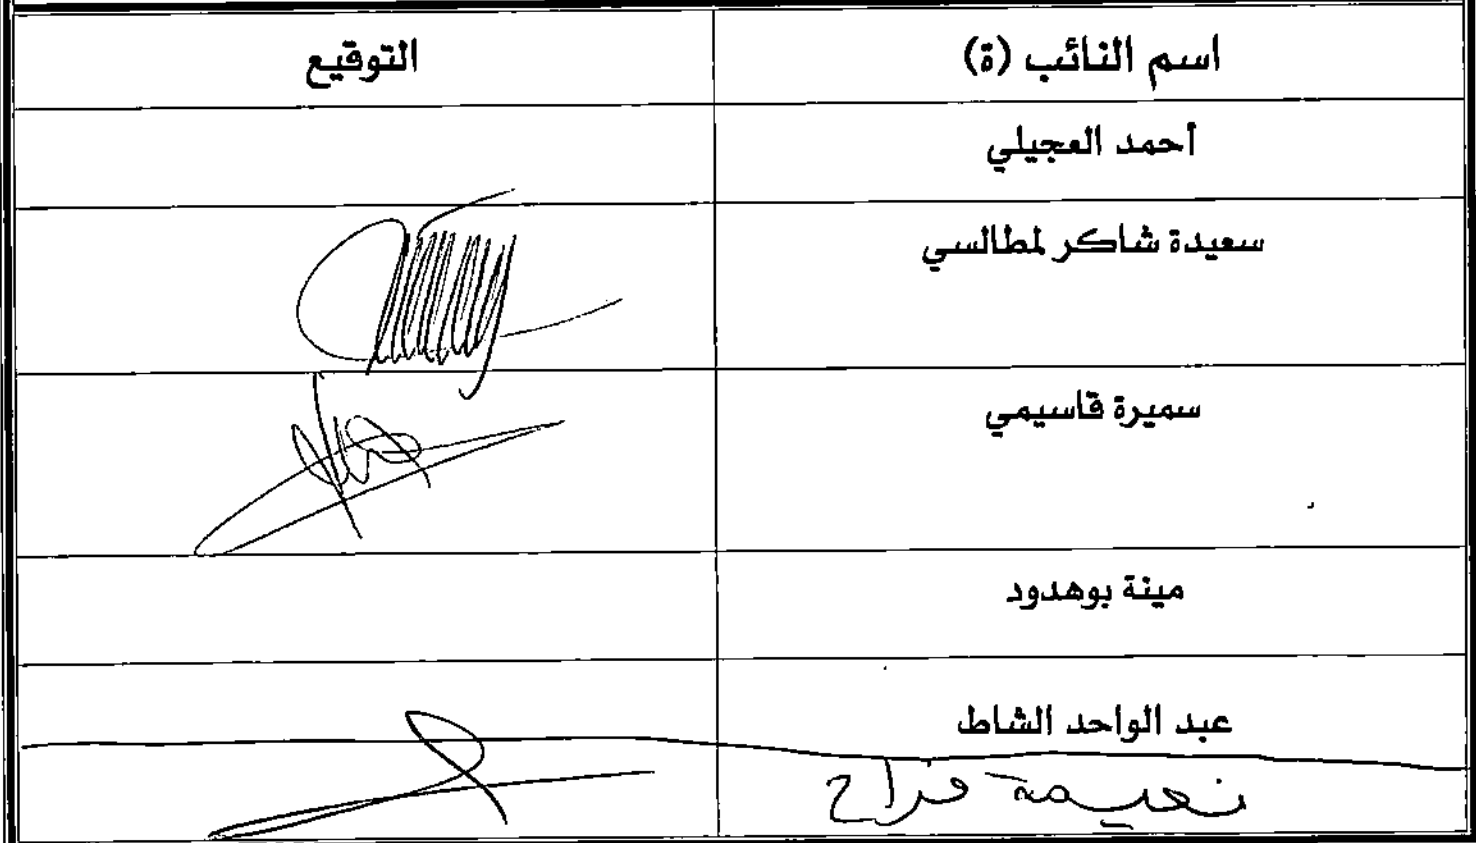 اسم النائب (ة) التوقيع
أحمد العجيلي
سعيدة شاكر لمطالسي
سميرة قاسيمي
مينة بوهدود
عبد الواحد الشاط
نعيمة فراح